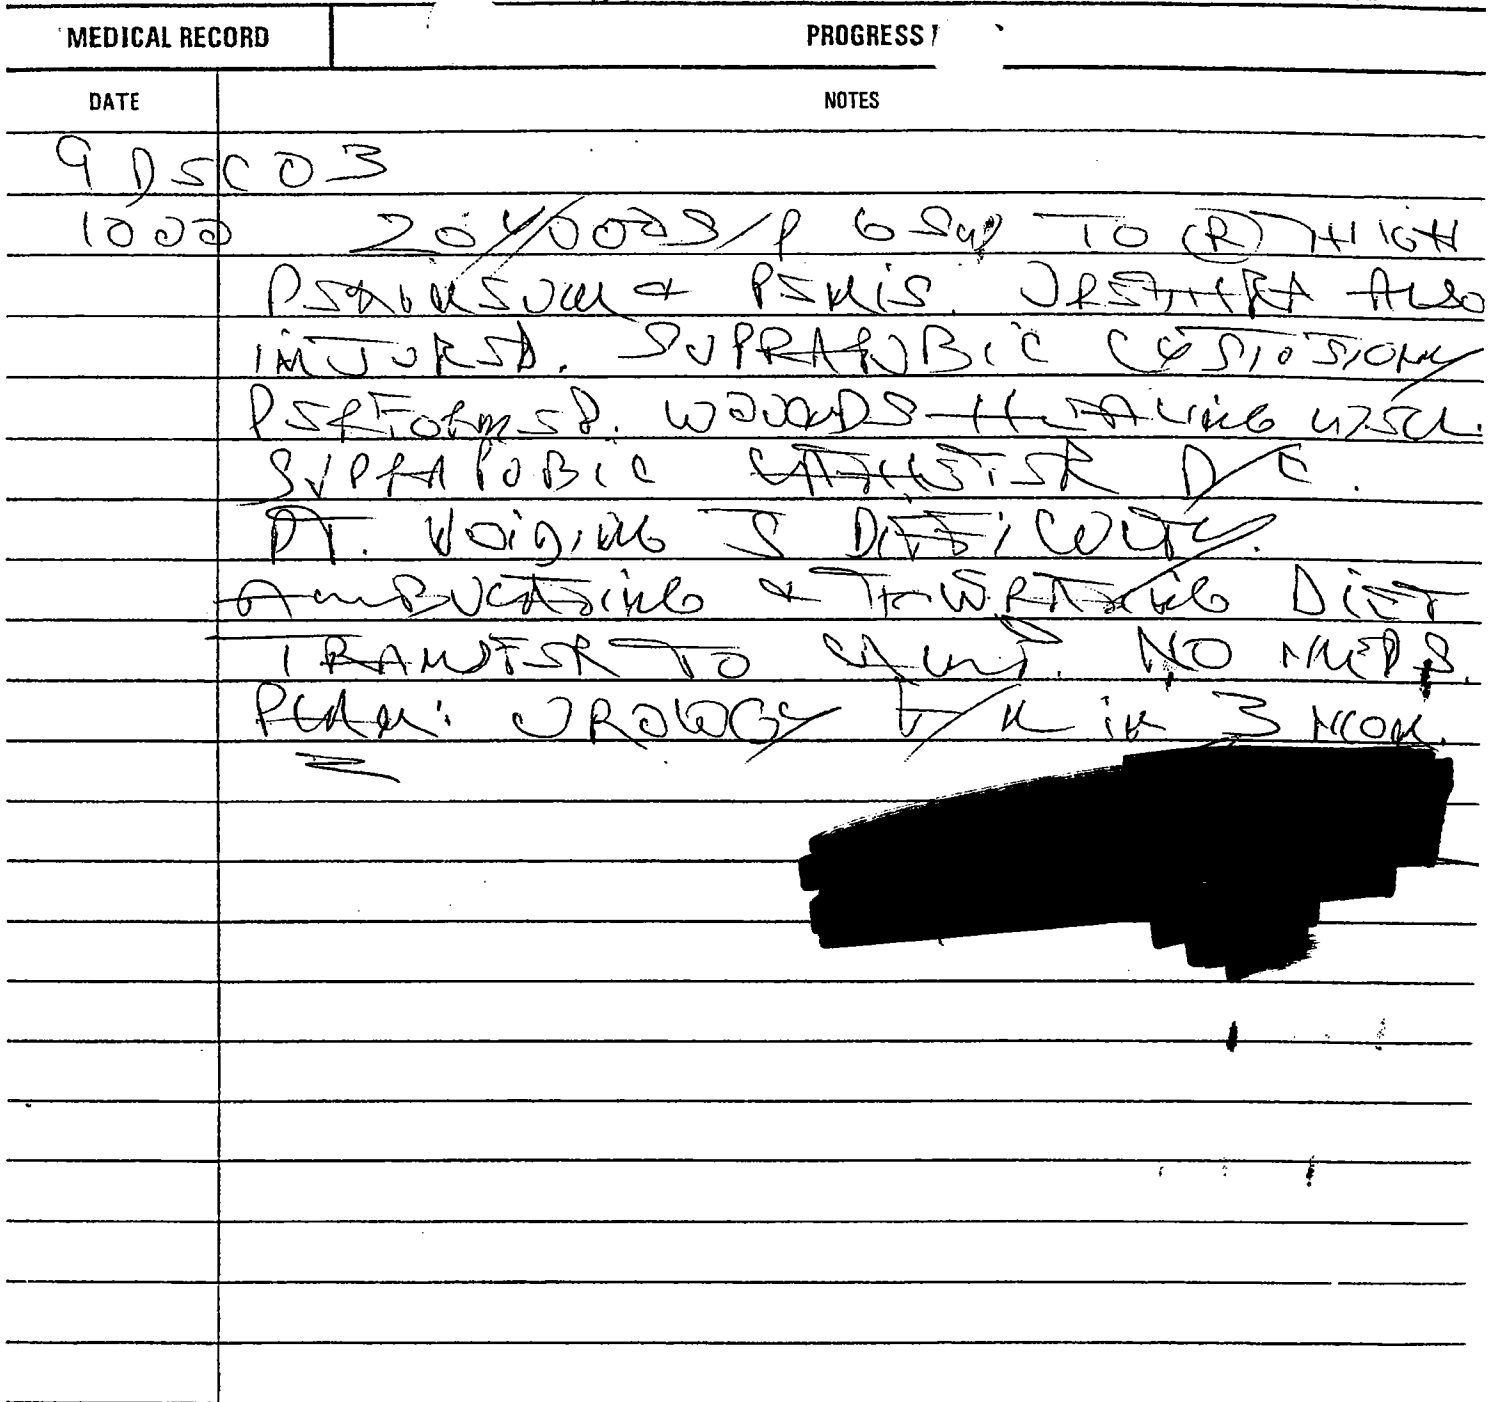 MEDICAL RECORD PROGRESS
DATE NOTES
9 DEC 03
1000 20 Y/O S/P GSW TO (R) THIGH
PERINEUM + PENIS. URETHRA ALSO
INJURED. SUPRAPUBIC CYSTOSTOMY
PERFORMED. WOUNDS HEALING WELL.
SUPRAPUBIC CATHETER D/C.
PT. VOIDING S DIFFICULTY.
AMBULATING + TOLERATING DIET
TRANSFER TO NO MEDS.
PLAN: UROLOGY F/U IN 3 MON.